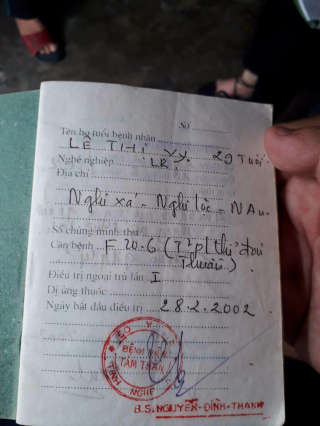 Số
Tên họ tuổi bệnh nhân
LÊ THỊ Vy. 29 Tuổi
Nghề nghiệp LR.
Địa chỉ
Nghi xá - Nghi lộc - N An.
Số chứng minh thư
Căn bệnh F 20.6 (T²pl thể đơn
Thuần)
Điều trị ngoại trú lần I
Dị ứng thuốc
Ngày bắt đầu điều trị 28.2.2002
SỞ Y TẾ
BỆNH VIỆN
TÂM THẦN
TỈNH NGHỆ
B.S. NGUYỄN-ĐÌNH-THANH